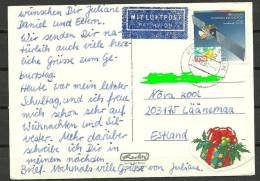 wünschen Dir Juliane
Daniel und Eileen.
Wir senden Dir na-
türlich auch viele herz-
liche Grüsse zum Ge-
burtstag.
Heute war mein letzter
Schultag, und ich freue
mich schon sehr auf
Weihnachten und Sil-
vester. Mehr darüber
schreibe ich Dir in
meinem nächsten
Brief. Nochmals viele Grüsse von Juliane.
MIT LUFTPOST
PAR AVION
Nõva kool
203175 Läänemaa
Estland